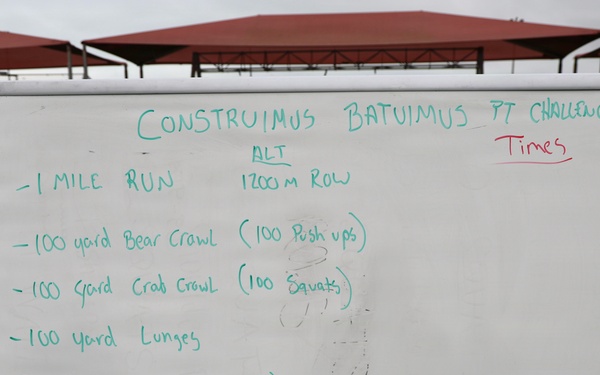 CONSTRUIMUS BATUIMUS PT CHALLENG
ALT
Times
- 1 MILE RUN 1200 M ROW
- 100 yard Bear Crawl (100 Push ups)
- 100 yard Crab Crawl (100 Squats)
- 100 yard Lunges